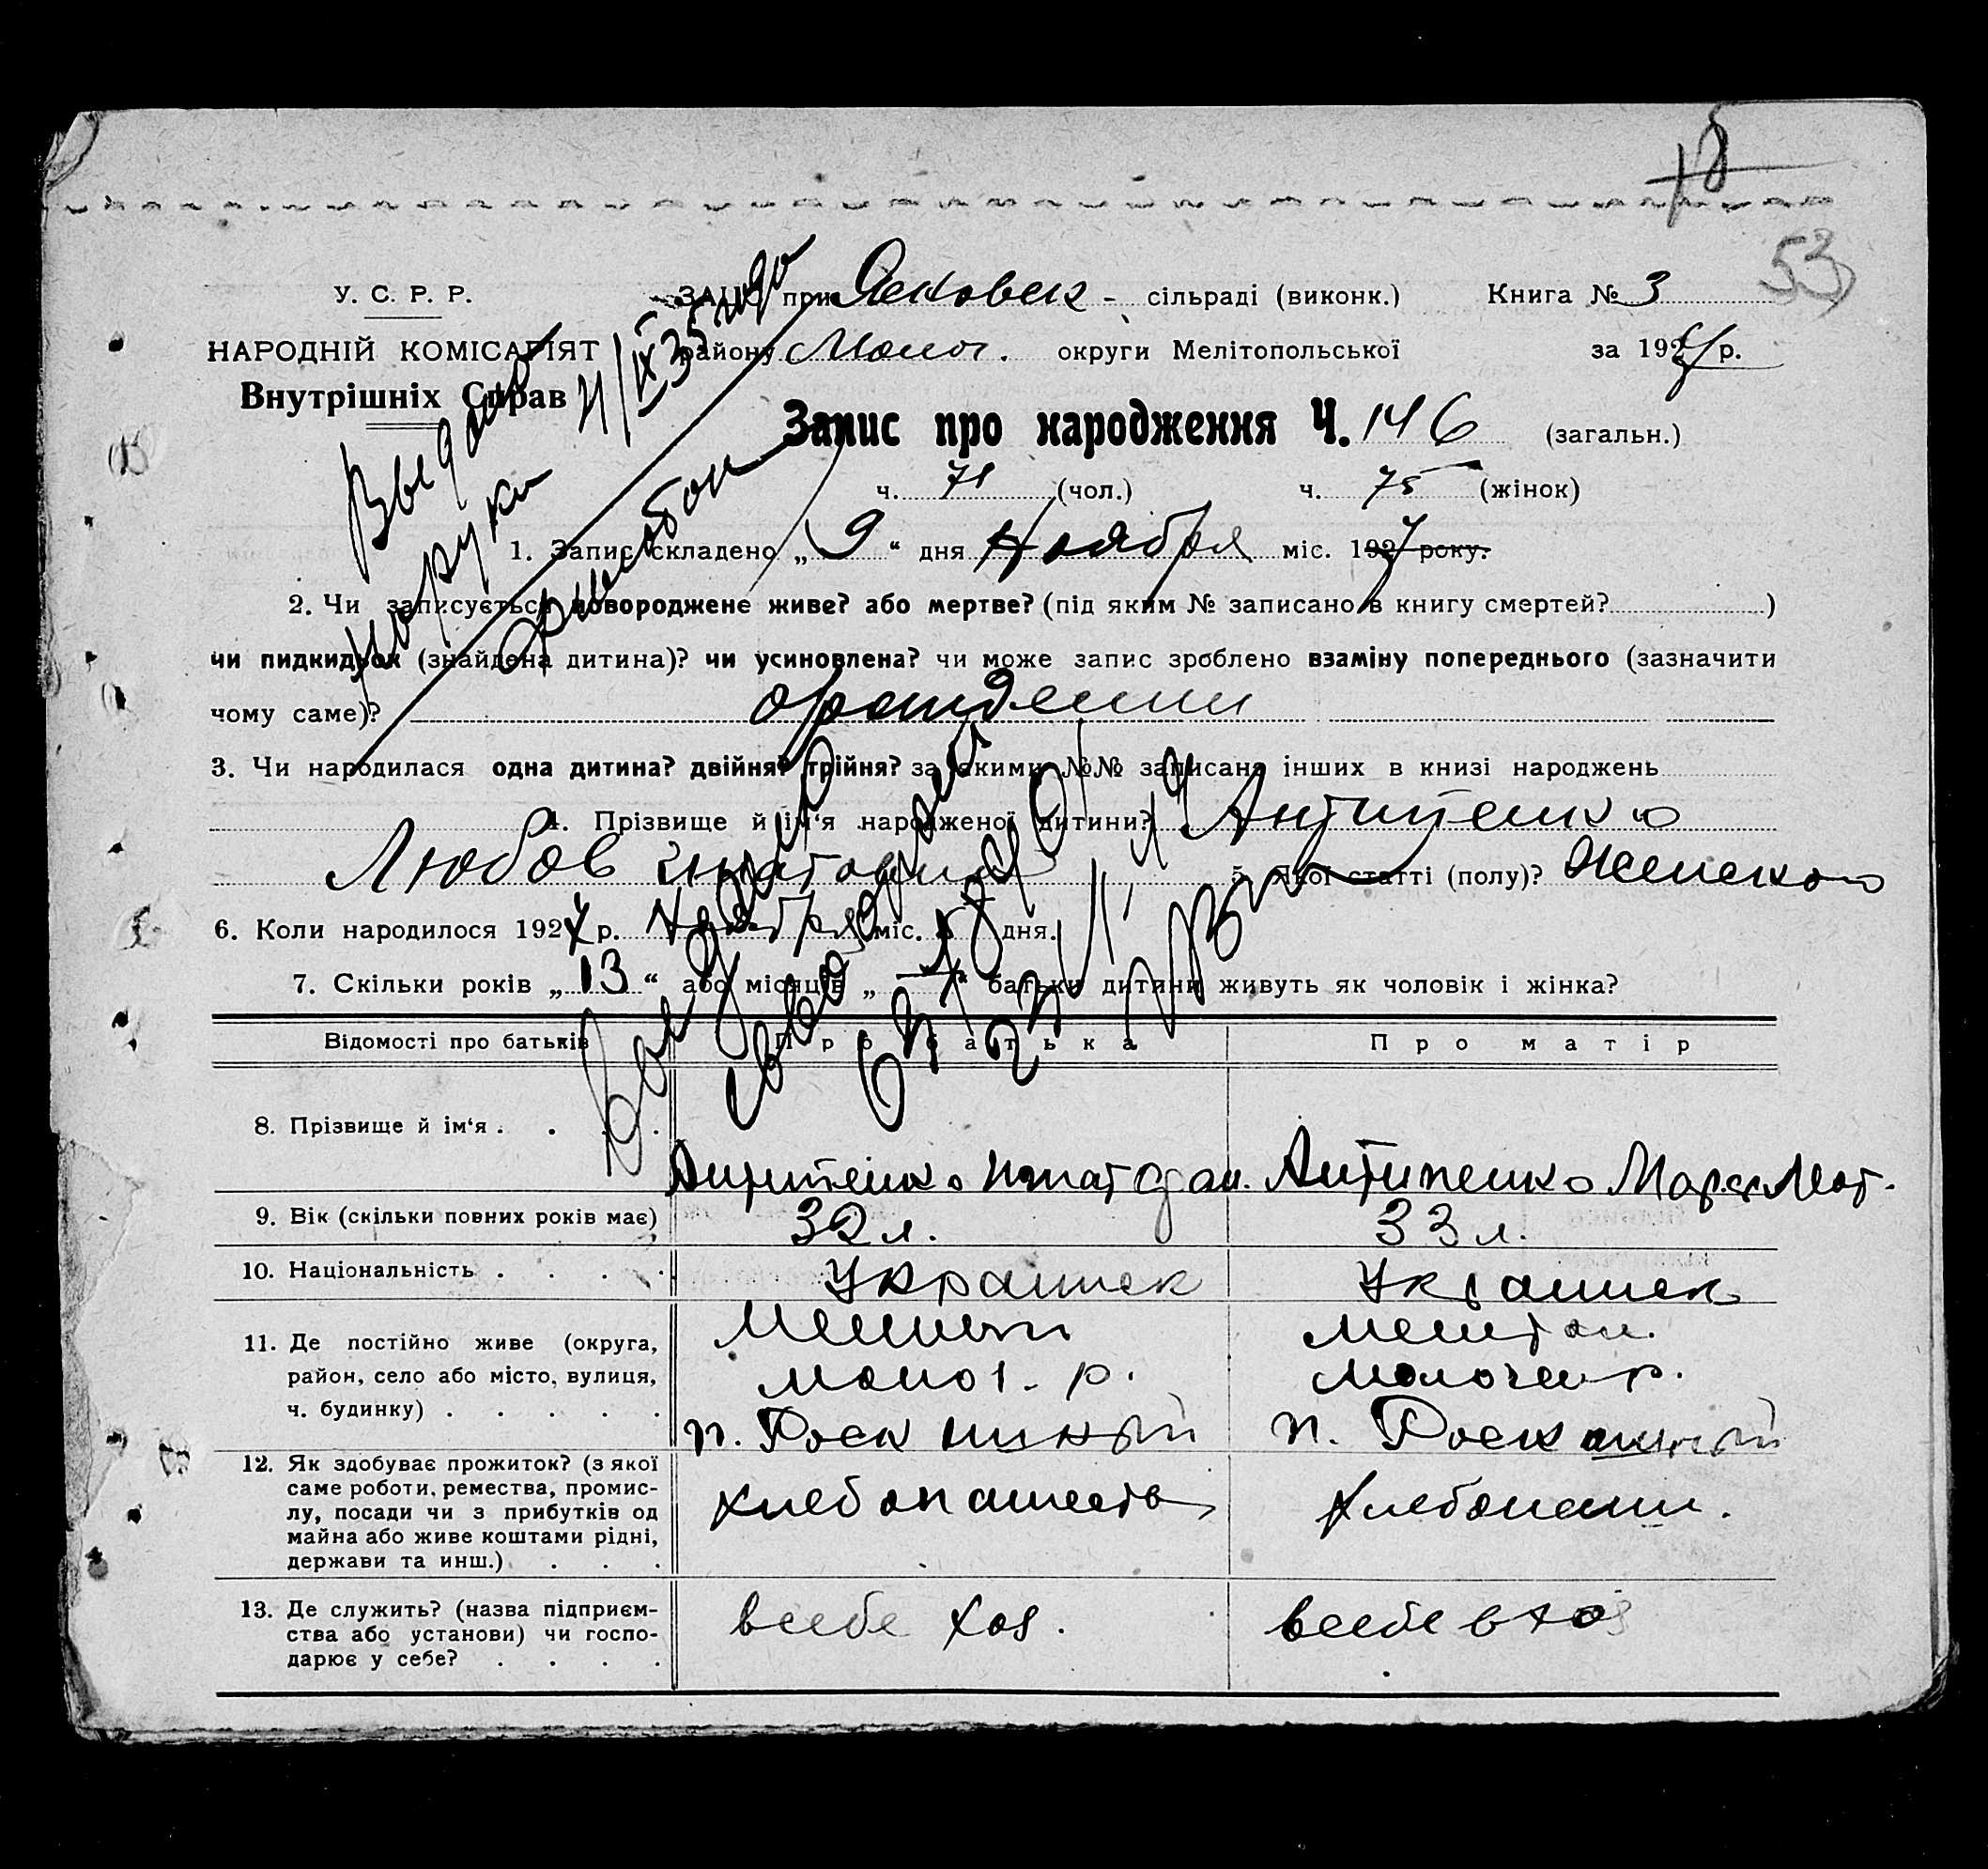 53
У. С. Р. Р.
НАРОДНІЙ КОМІСАРІЯТ
Внутрішніх Справ
ЗАЦС при сільраді (виконк.) Книга № 3
району Молоч. округи Мелітопольської за 1927 р.
Запис про народження Ч. 146 (загальн.)
ч. 71 (чол.) ч. 75 (жінок)
1. Запис складено „ 9 “ дня Ноября міс. 1927 року.
2. Чи записується новороджене живе? або мертве? (під яким № записано в книгу смертей? )
чи пидкидьок (знайдена дитина)? чи усиновлена? чи може запис зроблено взаміну попереднього (зазначити
чому саме)? о рождении
3. Чи народилася одна дитина? двійня? трійня? за якими №№ записано інших в книзі народжень
4. Прізвище й ім‘я народженої дитини? Антипенко
Любов Игнатовна 5. Якої статті (полу)? Женского
6. Коли народилося 1927 р. Ноября міс. дня.
7. Скільки років „ 13 “ або місяців „ “ батьки дитини живуть як чоловік і жінка?
Выдано
на руки
4/IX 35 года
Відомості про батьків Про батька Про матір
8. Прізвище й ім‘я . . . . Антипенко Игнат Антипенко Мария Мат.
9. Вік (скільки повних років має) 32 л. 33 л.
10. Національність . . . . Украинск Украинск
11. Де постійно живе (округа, Мелитоп Мелитоп.
район, село або місто, вулиця, Молоч. р. Молочан р.
ч. будинку) . . . . . п. Роскишный п. Роскошный
12. Як здобуває прожиток? (з якої
саме роботи, ремества, промис-
лу, посади чи з прибутків од хлебопашеств хлебопаш.
майна або живе коштами рідні,
держави та инш.) . . .
13. Де служить? (назва підприєм-
ства або установи) чи госпо- в себе хоз. в себе в хоз
дарює у себе? . . . .